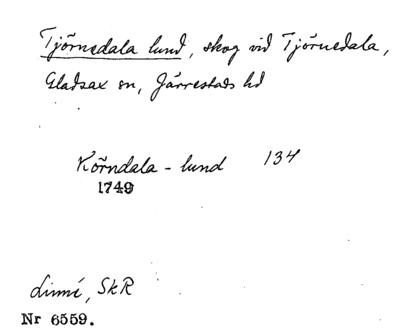 Tjörnedala lund, skog vid Tjörnedala,
Gladsax sn, Järrestads hd
Körndala - lund 134
1749
Linné, SkR
Nr 6559.